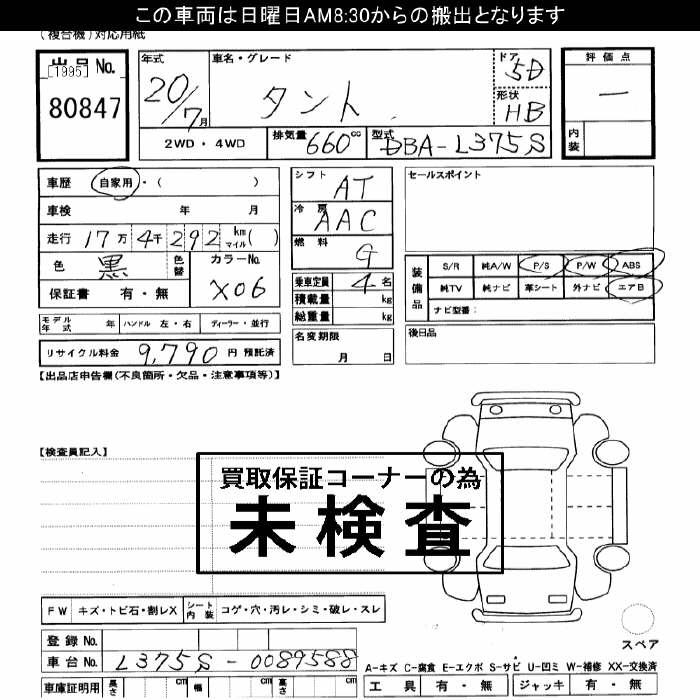 この車両は日曜日AM8:30からの搬出となります
(複合機)対応用紙
出品No.
[1995]
80847
年式 車名・グレード ドア
20/7月 タント 5D
形状 HB
2WD・4WD 排気量 660cc 型式 DBA-L375S
評価点
—
内装
車歴 自家用・( )
車検 年 月
走行 17万4千292 km マイル( )
色 黒 色替 カラーNo. X06
保証書 有・無
モデル年式 年 ハンドル 左・右 ディーラー・並行
リサイクル料金 9,790 円 預託済
シフト AT
冷房 AAC
燃料 G
乗車定員 4 名
積載量 kg
総重量 kg
名変期限
月 日
セールスポイント
装備品
S/R 純A/W P/S P/W ABS
純TV 純ナビ 革シート 外ナビ エアB
ナビ型番:
後日品
【出品店申告欄(不良個所・欠品・注意事項等)】
【検査員記入】
買取保証コーナーの為
未検査
FW キズ・トビ石・割レX シート内装 コゲ・穴・汚レ・シミ・破レ・スレ
登録No.
車台No. L375S-0089588
車庫証明用 長さ cm 幅 cm 高さ cm
スペア
A-キズ C-腐食 E-エクボ S-サビ U-凹ミ W-補修 XX-交換済
工具 有・無 ジャッキ 有・無